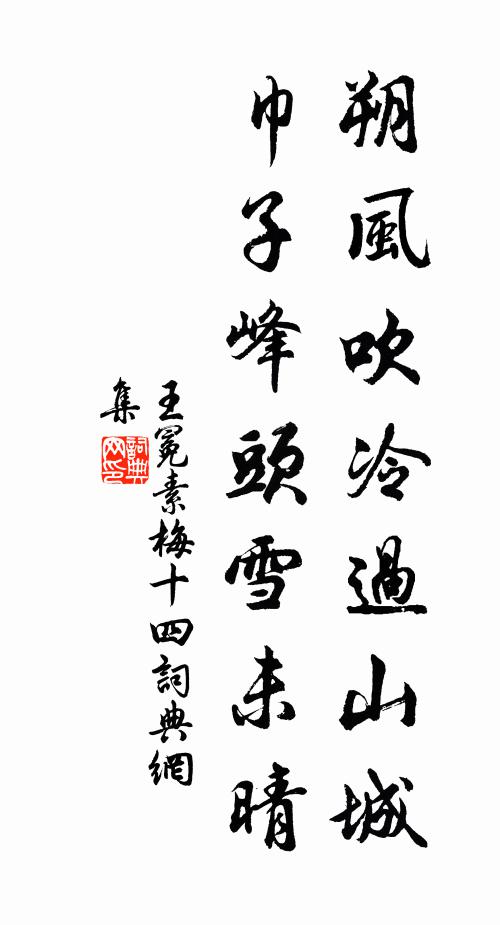 朔風吹冷過山城
巾子峰頭雪未晴
王冕素梅十四詞典網
集
詞典網印